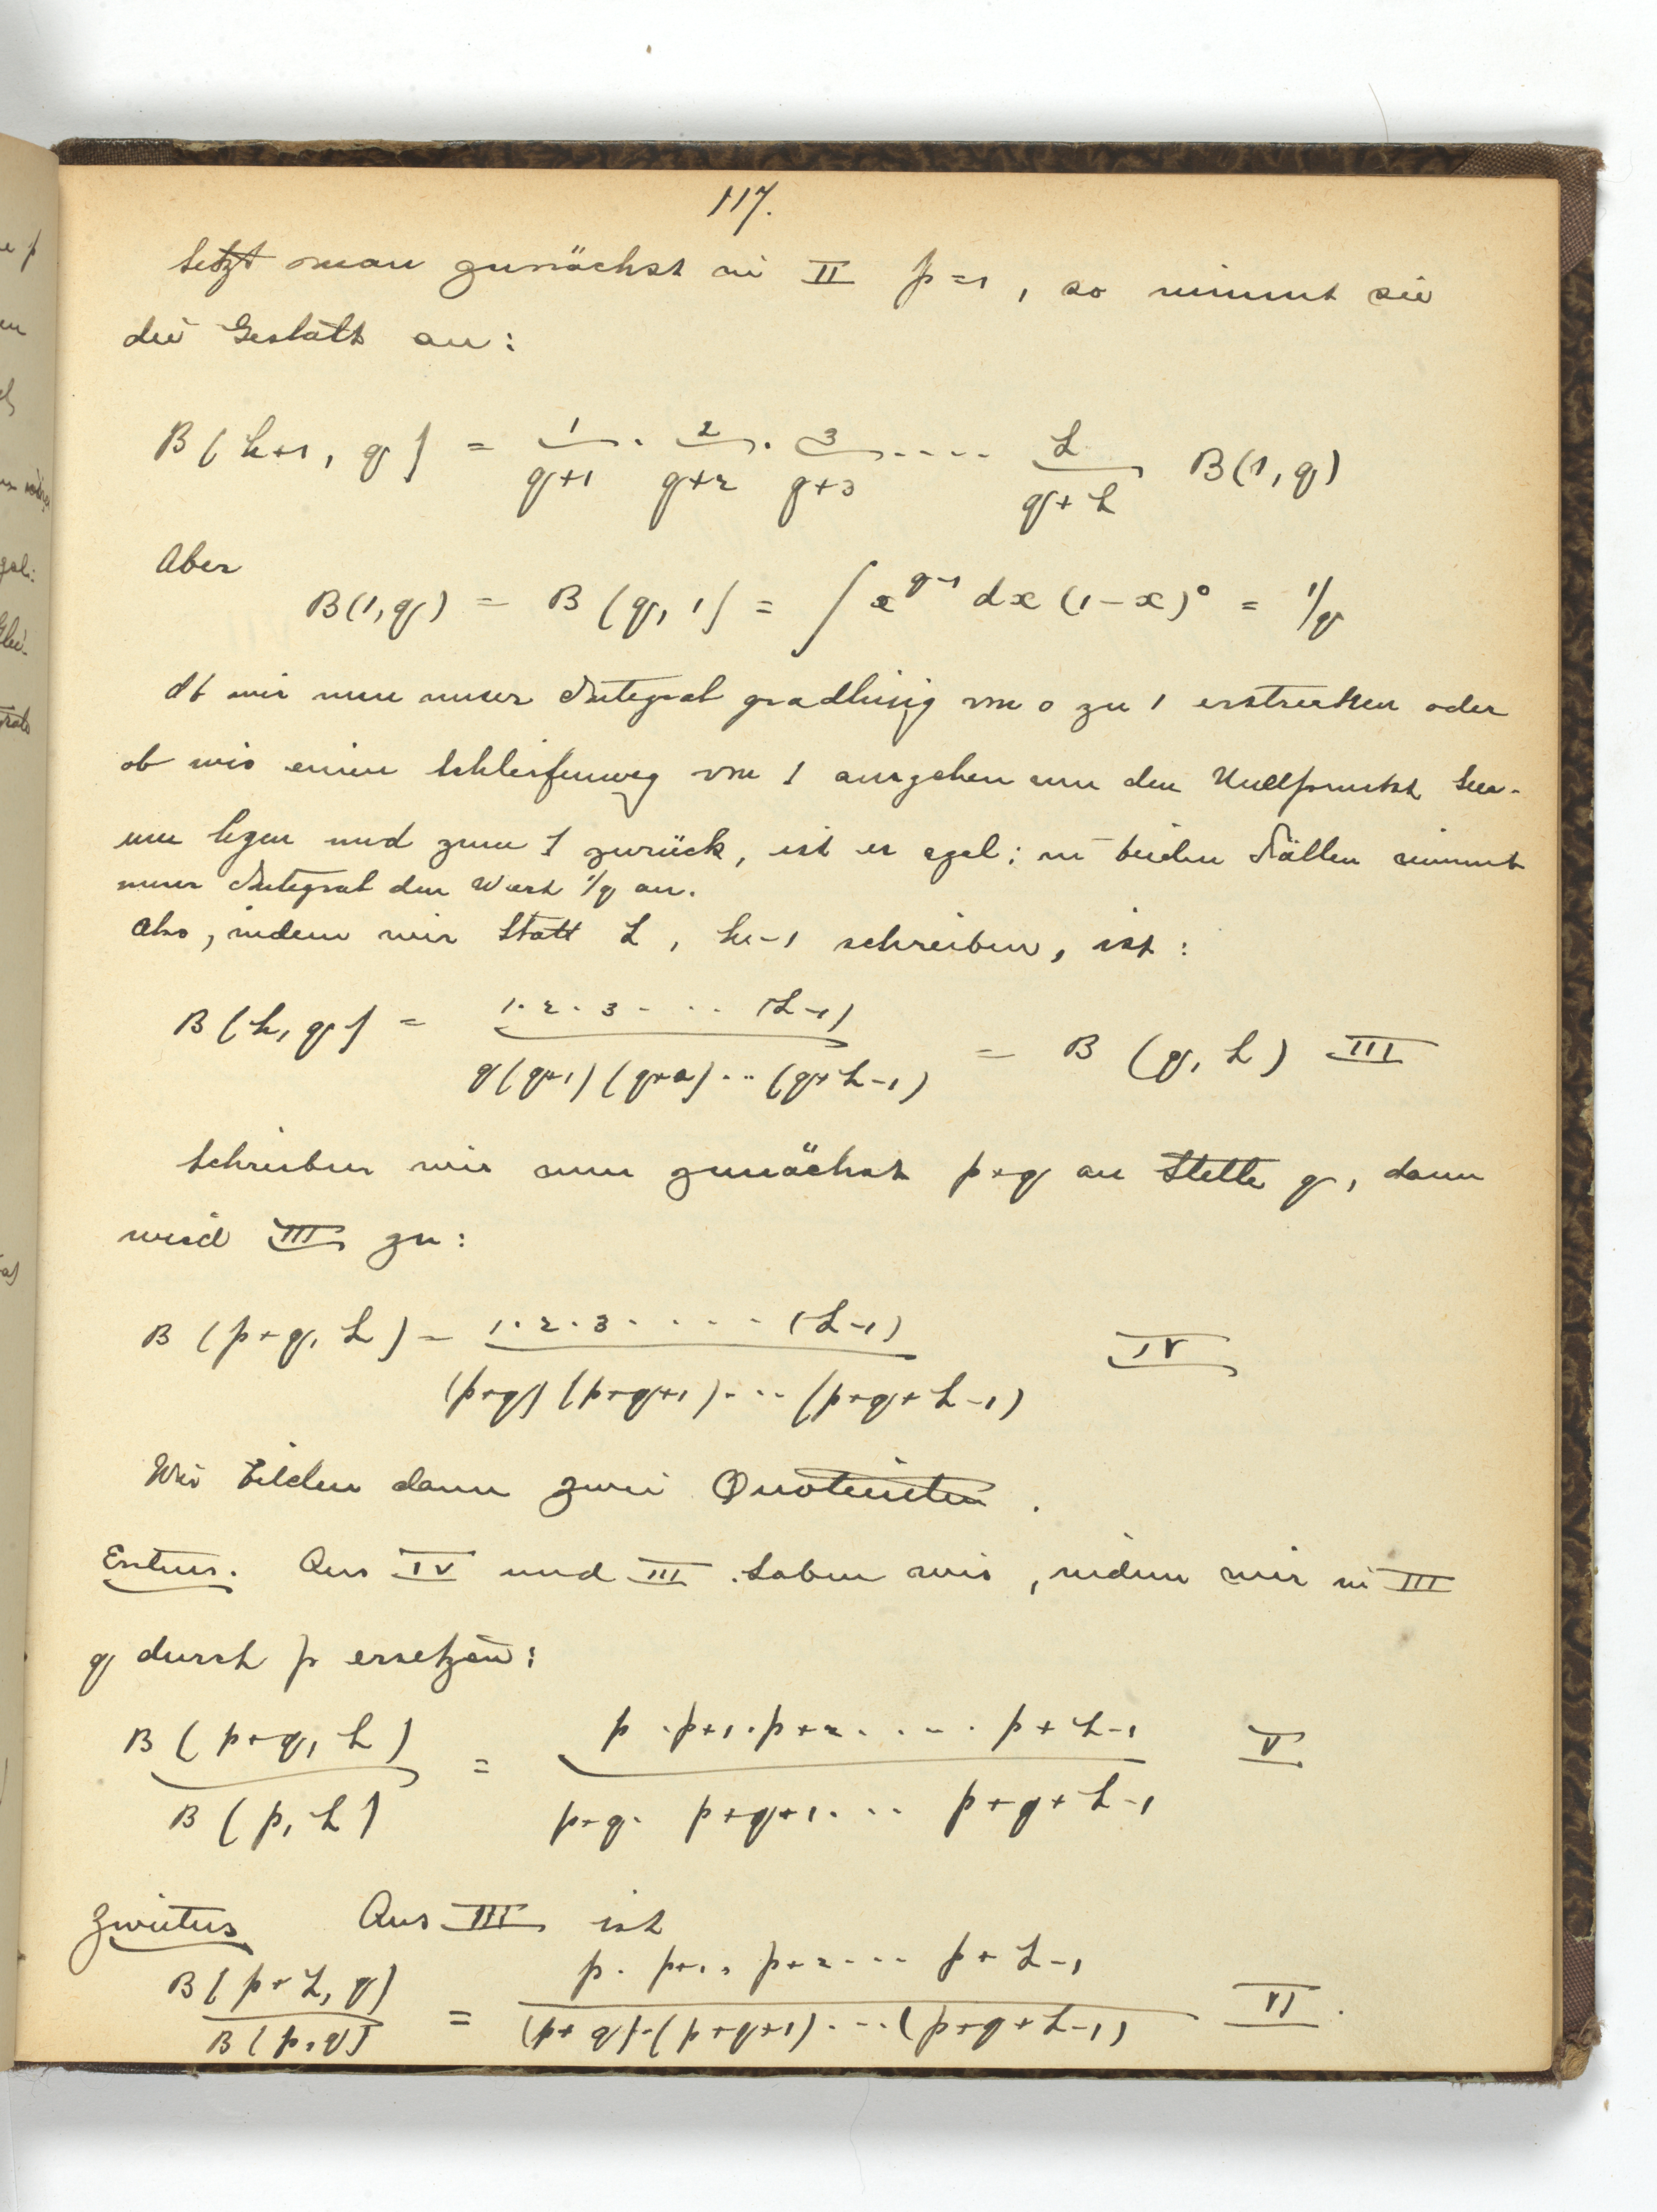 117.
Setzt man zunächst in II p=1, so nimmt sie
die Gestalt an:
B(h+1, q) = 1/(q+1) · 2/(q+2) · 3/(q+3) .... h/(q+h) B(1,q)
Aber
B(1,q) = B(q,1) = ∫ x^(q-1) dx (1-x)^0 = 1/q
Ob wir nun unser Integral gradlinig von 0 zu 1 erstrecken oder
ob wir einen Schleifenweg von 1 ausgehen um den Nullpunkt her-
um legen und zum 1 zurück, ist es egal: in beiden Fällen nimmt
unser Integral den Wert 1/q an.
Also, indem wir statt h, h-1 schreiben, ist:
B(h,q) = 1·2·3···· (h-1) / q(q+1)(q+2)···(q+h-1) = B(q,h) III
Schreiben wir nun zunächst p+q an Stelle q, dann
wird III zu:
B(p+q, h) = 1·2·3····· (h-1) / (p+q)(p+q+1)···(p+q+h-1) IV
Wir bilden dann zwei Quotienten.
Erstens. Aus IV und III haben wir, indem wir in III
q durch p ersetzen:
B(p+q, h) / B(p, h) = p·p+1·p+2····· p+h-1 / p+q· p+q+1··· p+q+h-1 V
Zweitens Aus III ist
B(p+h, q) / B(p,q) = p· p+1· p+2··· p+h-1 / (p+q)·(p+q+1)···(p+q+h-1) VI.